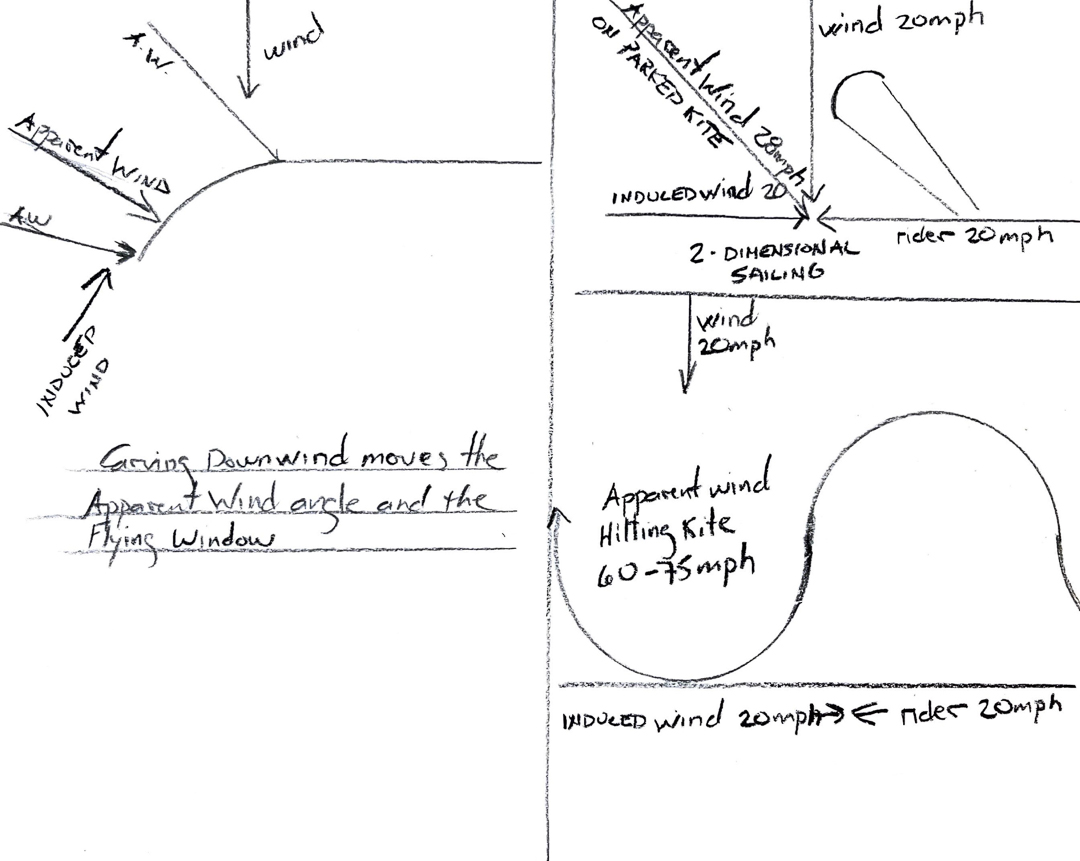 wind
A.W.
Apparent WIND
A.W
INDUCED
WIND
Carving Downwind moves the
Apparent Wind angle and the
Flying Window
Apparent Wind 28mph
ON PARKED KITE
wind 20mph
INDUCED Wind 20
rider 20mph
2-DIMENSIONAL
SAILING
wind
20mph
Apparent wind
Hitting Kite
60-75mph
INDUCED wind 20mph
rider 20mph